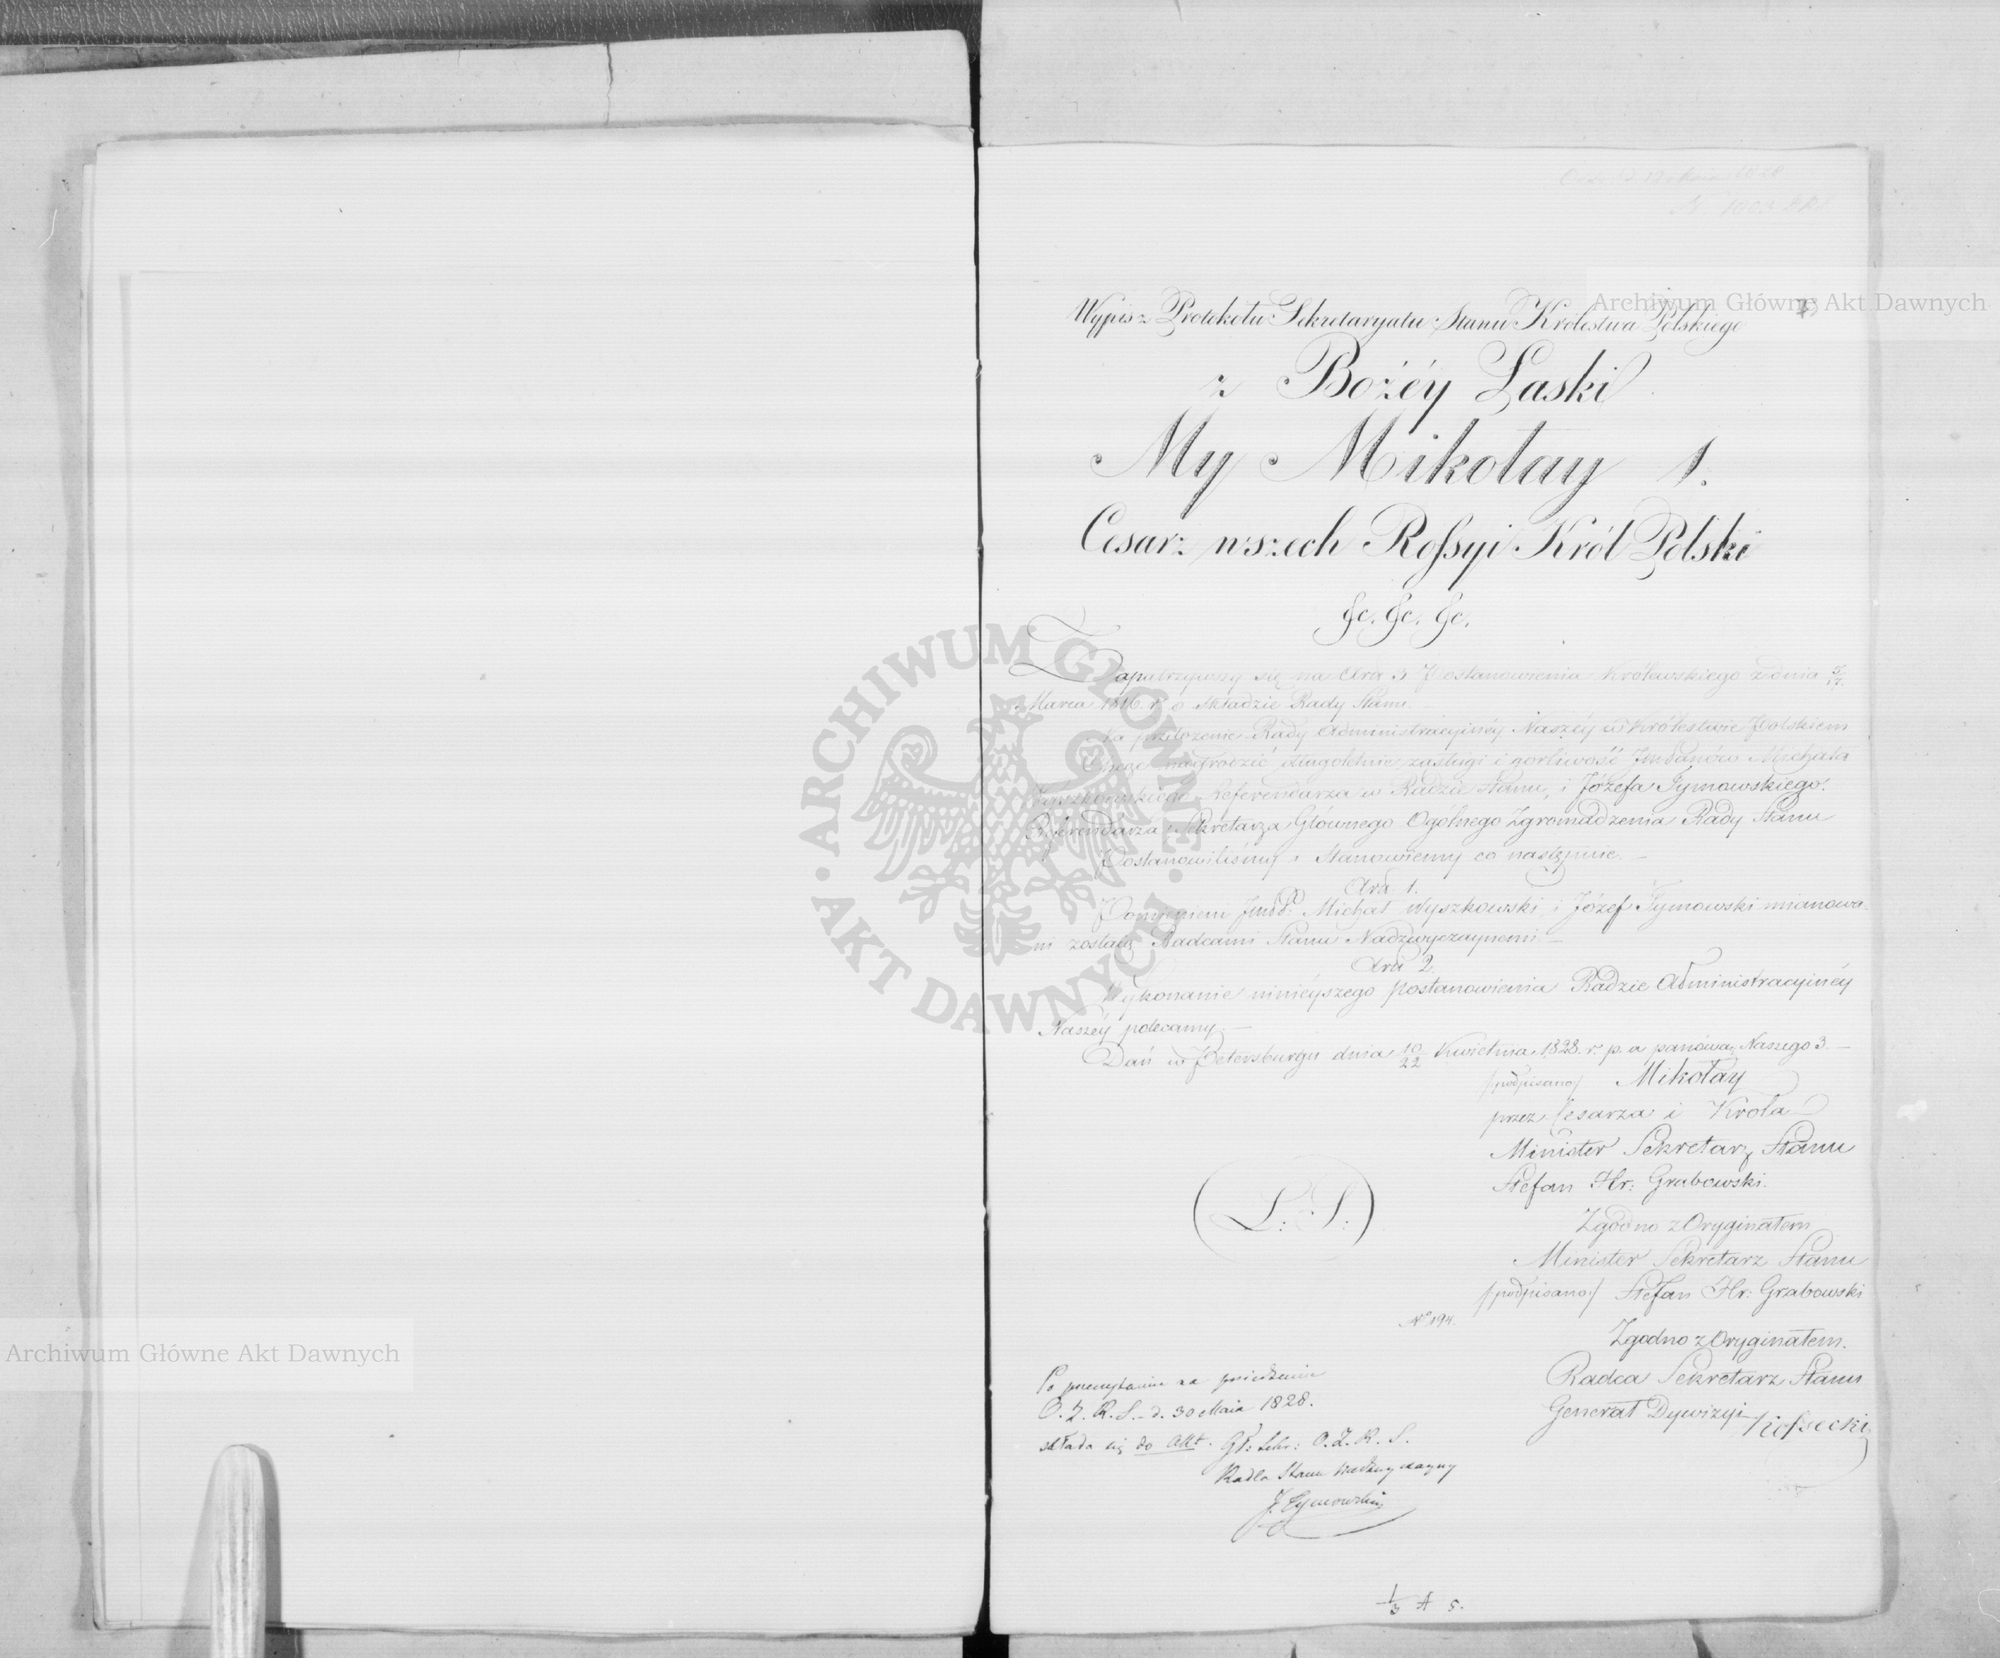 Wypis z Protokołu Sekretaryatu Stanu Królestwa Polskiego
z Bożéy Łaski
My Mikołay 1.
Cesarz wszech Rossyi Król Polski
&c. &c. &c.
Zapatrzywszy się na Art. 3 Postanowienia Królewskiego z dnia 5/17.
Marca 1816. r. o Składzie Rady Stanu. —
Na przełożenie Rady Administracyjnéy Naszéy w Królestwie Polskiem
Chcąc nadgrodzić długoletnie zasługi i gorliwość JmPanów Michała
Wyszkowskiego Referendarza w Radzie Stanu, i Józefa Tymowskiego.
Referendarza Sekretarza Głównego Ogólnego Zgromadzenia Rady Stanu
Postanowiliśmy i Stanowiemy co następuie. —
Art. 1.
Pomienieni JmPP: Michał Wyszkowski i Józef Tymowski mianowa-
ni zostaią Radcami Stanu Nadzwyczaynemi. —
Art. 2.
Wykonanie ninieyszego postanowienia Radzie Administracyjnéy
Naszéy polecamy. —
Dań w Petersburgu dnia 10/22 Kwietnia 1828. r. p. a panowa: Naszego 3. —
/podpisano/ Mikołay
przez Cesarza i Króla
Minister Sekretarz Stanu
Stefan Hr: Grabowski.
(L: S:)
Zgodno z Oryginałem
Minister Sekretarz Stanu
/podpisano/ Stefan Hr: Grabowski
No 194.
Zgodno z Oryginałem.
Radca Sekretarz Stanu
Generał Dywizyi Kossecki
Po przeczytaniu na posiedzeniu
O. Z. R. S. - d. 30 Maia 1828.
składa się do Akt. Gł: Sekr: O. Z. R. S.
Radca Stanu Nadzwyczayny
J. Tymowski
1/3 A 5.
Archiwum Główne Akt Dawnych
ARCHIWUM GŁÓWNE · AKT DAWNYCH ·
Archiwum Główne Akt Dawnych